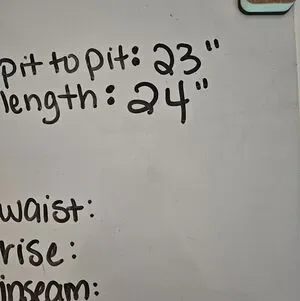 pit to pit: 23"
length: 24"
waist:
rise:
inseam: